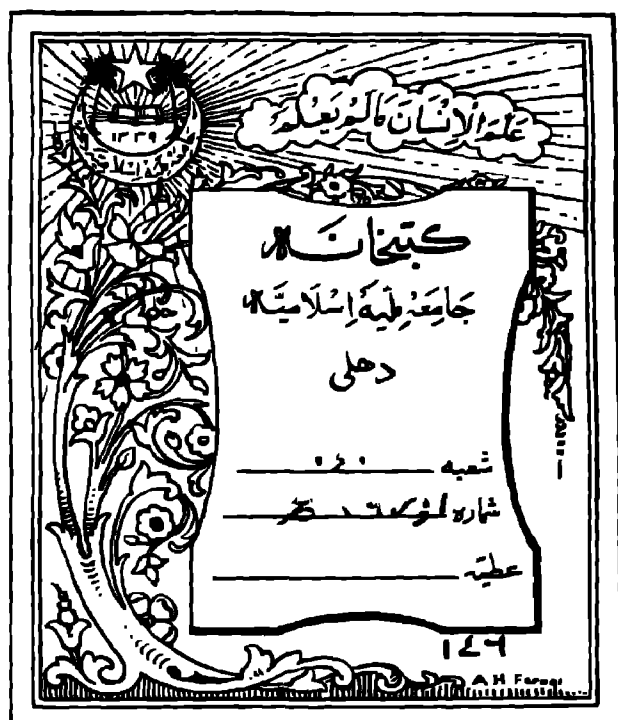 عَلَّمَ الْإِنْسَانَ مَا لَمْ يَعْلَمْ
١٣٣٩
كتبخانہ
جامعہ ملیہ اسلامیہ
دهلی
شعبہ
شمارہ
عطیہ
١٤٦
A H Faruqi